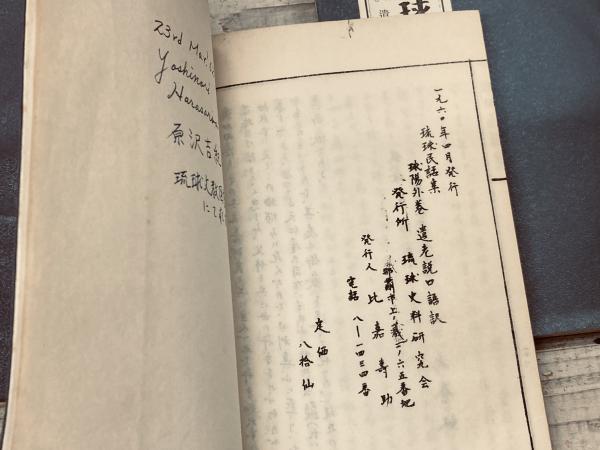 23rd Mar.
Yoshinori
Harasawa
原沢吉
琉球文教
にて
遺
一九六〇年四月発行
琉球民話集
球陽外巻 遺老説口語訳
発行所 琉球史料研究会
那覇市上ノ蔵一ノ六五番地
発行人 比嘉寿助
電話 八—一四三四番
定価
八拾仙